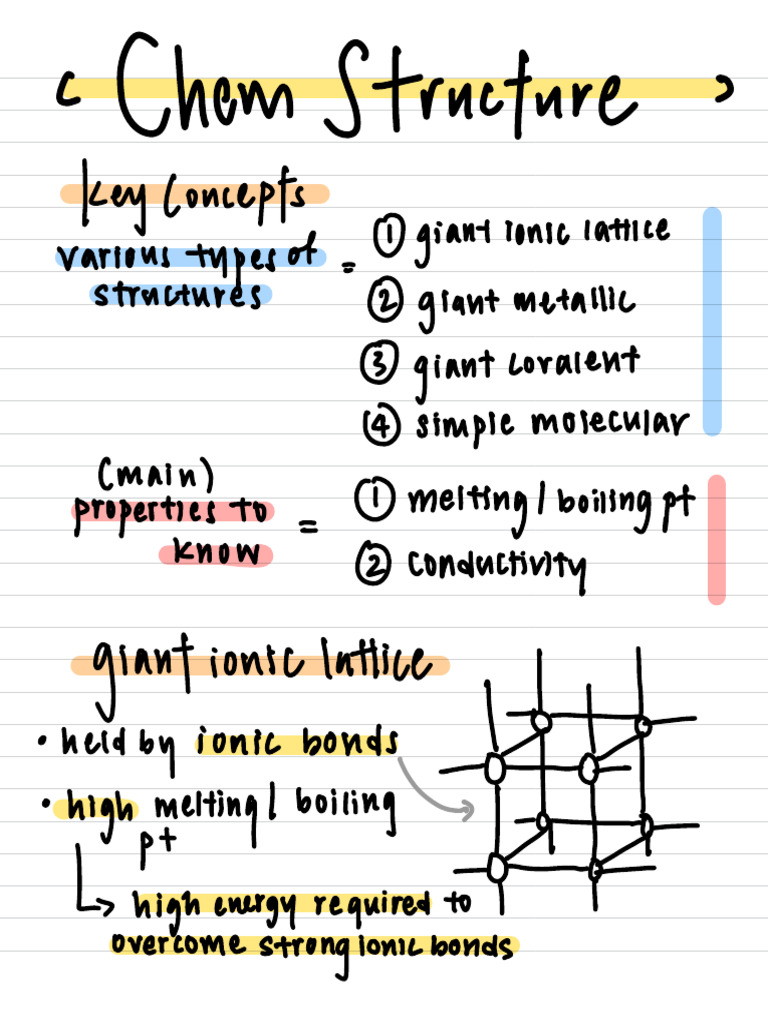 < Chem Structure >
key concepts
various types of
structures
=
① giant ionic lattice
② giant metallic
③ giant covalent
④ simple molecular
(main)
properties to
know
=
① melting / boiling pt
② conductivity
giant ionic lattice
• held by ionic bonds
• high melting / boiling
pt
↳ high energy required to
overcome strong ionic bonds